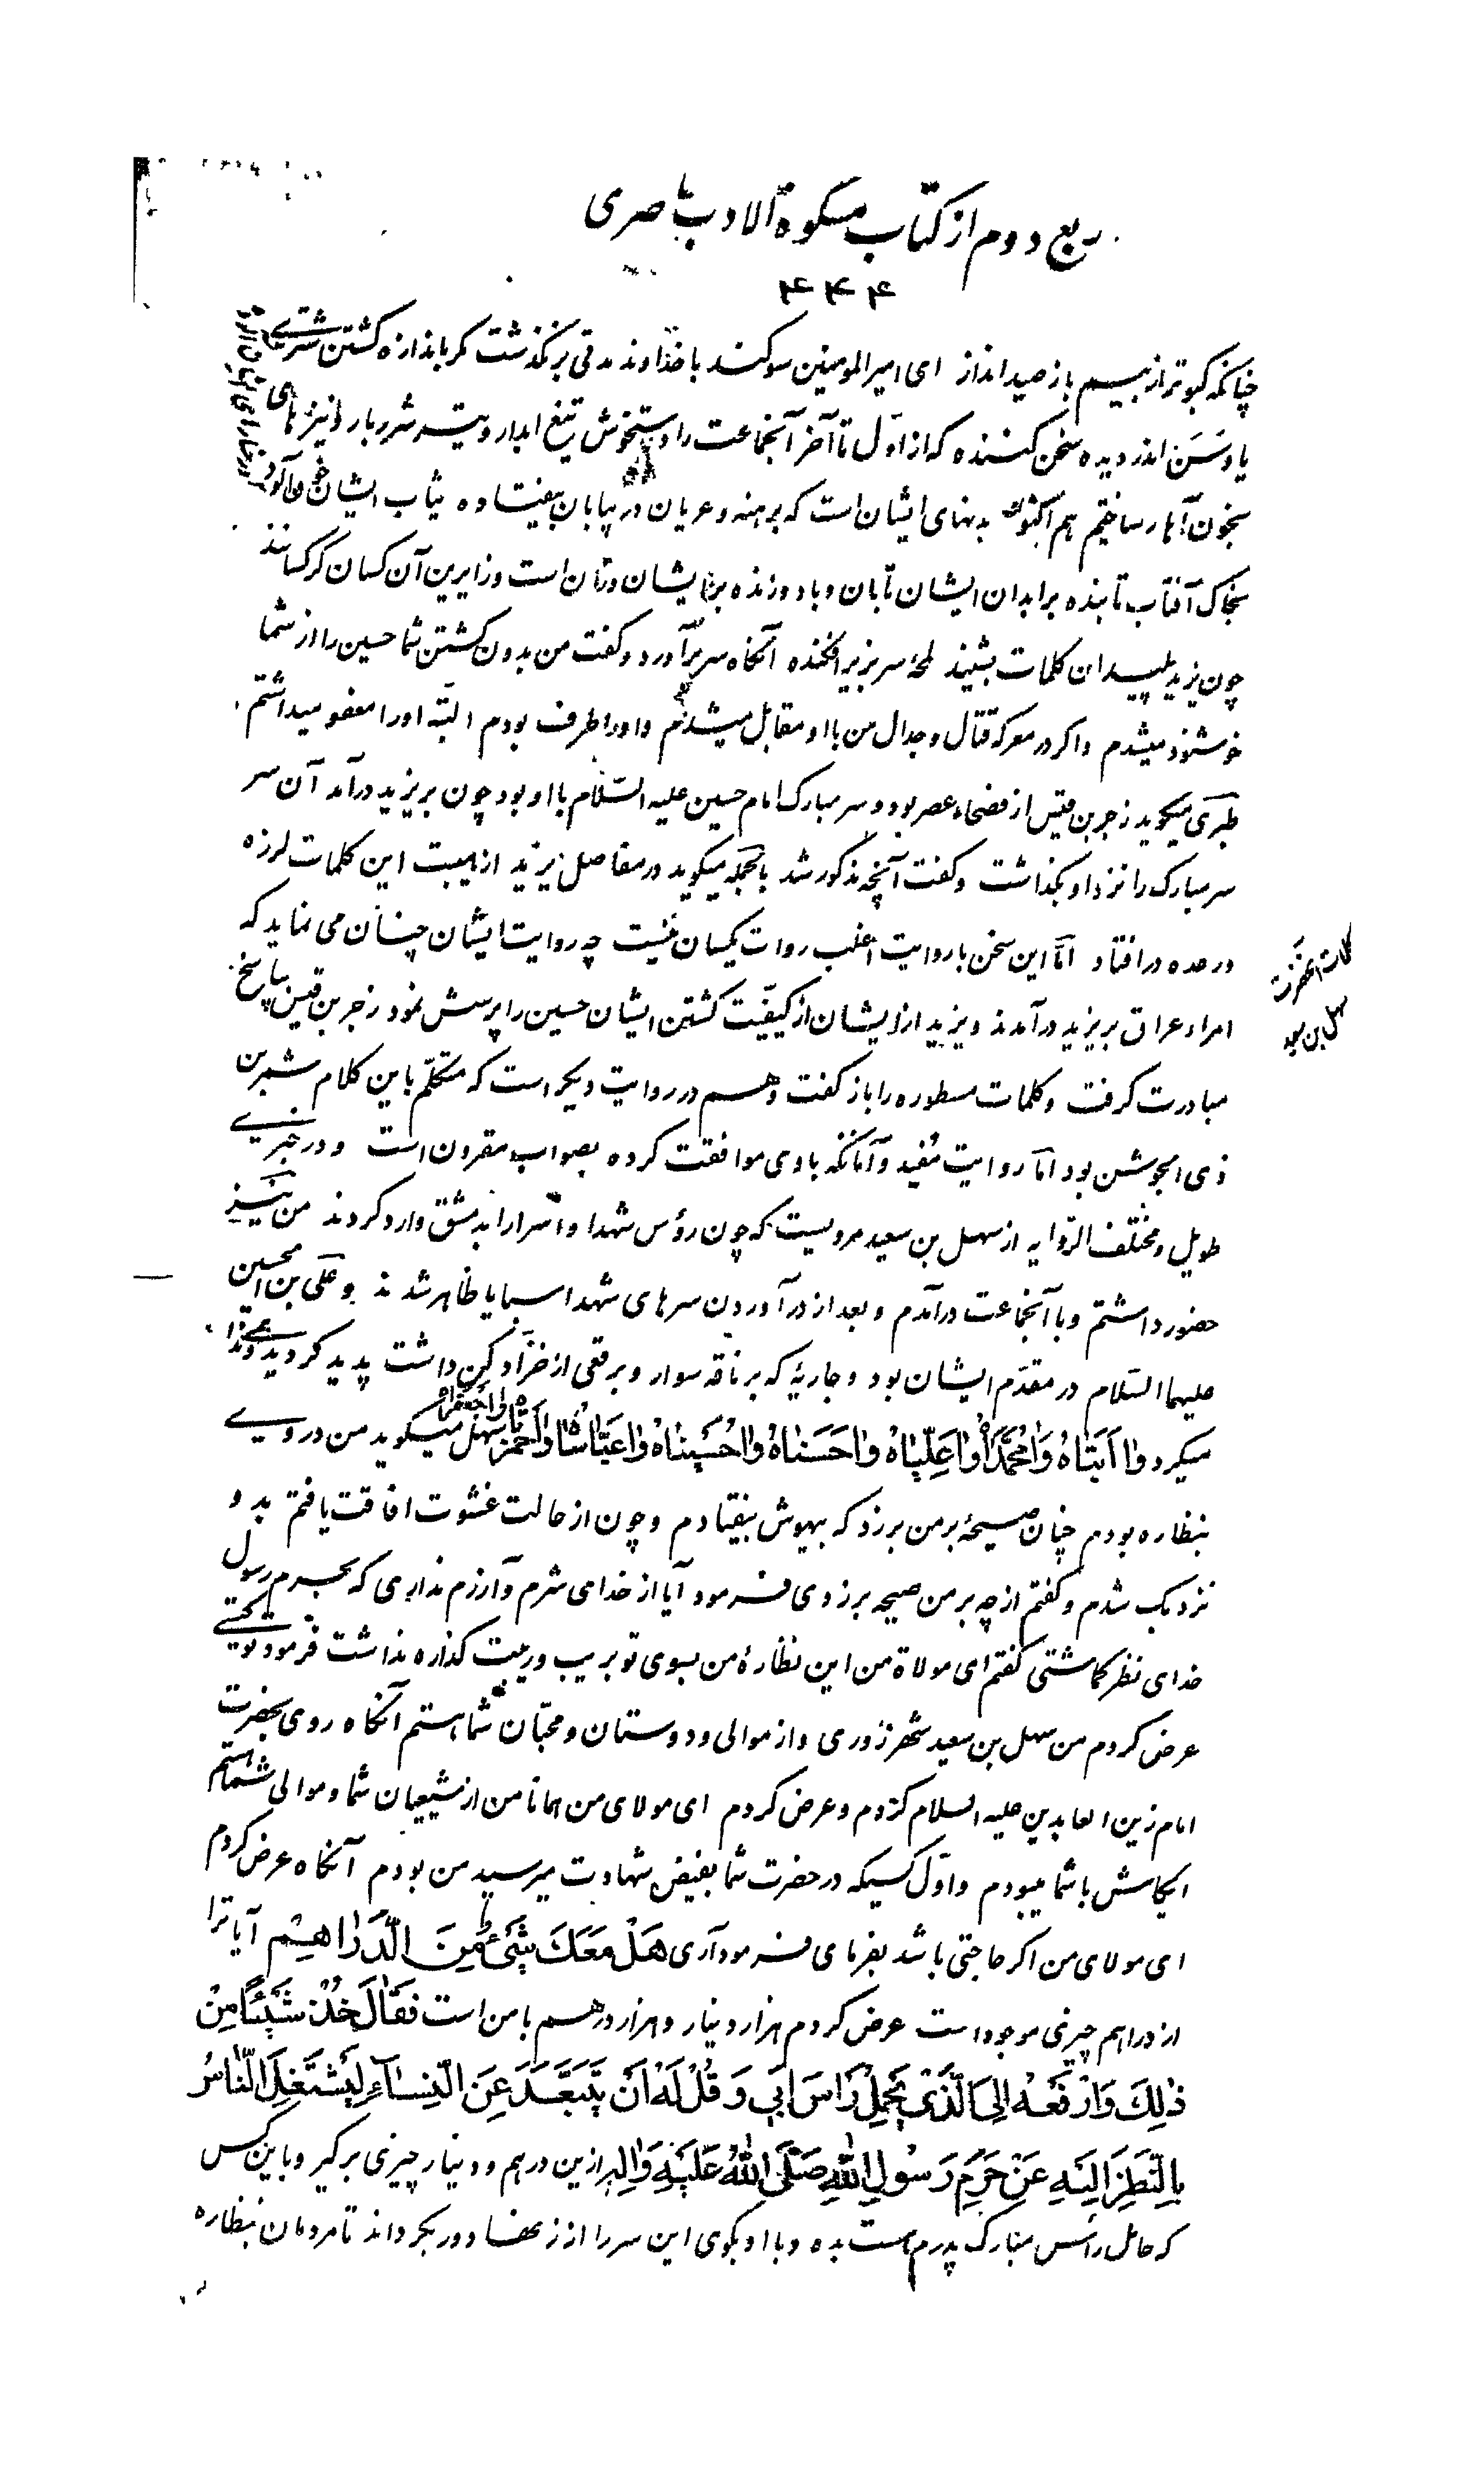 ربع دوم از کتاب مشکوة الادب ناصری
۴۴۴
چنانکه کبوتر از بیم باز صید انداز ای امیرالمومنین سوکند با خداوند مدتی برنگذشت مکر باندازه کشتن شتری
یا وسن اندر دیده سخن کننده که از اول تا آخر آنجماعت را دستخوش تیغ ابدار و شرربار و نیزهای
بخون آهار ساختیم هم اکنون بدنهای ایشان است که برهنه و عریان در بیابان بیفتاده ثیاب ایشان خون آلود
بخاک آفتاب تابنده بر ابدان ایشان تابان و باد وزنده بر ایشان وزان است و زایرین آن کسان کرکسانند
چون یزید پلید ان کلمات بشنید لمحهٔ سر بزیر افکنده آنکاه سر برآورد و کفت من بدون کشتن شما حسین را از شما
خوشنود میشدم و اکر در معرکه قتال و جدال من با او مقابل میشدم و او را طرف بودم البته او را معفو میداشتم
طبری میکوید زجر بن قیس از فصحاء عصر بود و سر مبارک امام حسین علیه السلام با او بود چون بر یزید درآمد آن سر
سر مبارک را نزد او بگذاشت و کفت آنچه مذکور شد بالجمله میکوید در مفاصل یزید از هیبت این کلمات لرزه
و رعده در افتاد اما این سخن با روایت اغلب روات یکسان نیست چه روایت ایشان چنان می نماید که
کلمات آنحضرت
سهل بن سعید
امراء عراق بر یزید درآمدند و یزید از ایشان از کیفیت کشتن ایشان حسین را پرسش نمود زجر بن قیس بپاسخ
مبادرت کرفت و کلمات مسطوره را باز کفت و هم در روایت دیکر است که متکلم باین کلام شمر بن
ذی الجوشن بود اما روایت مفید و آنانکه با وی موافقت کرده بصواب مقرون است و در خبری
طویل و مختلف الروایه از سهل بن سعید مرویست که چون رؤس شهدا و اسرا را بدمشق وارد کردند من نیز
حضور داشتم و با آنجماعت درآمدم و بعد از درآوردن سرهای شهدا سبایا ظاهر شدند و علی بن الحسین
علیهما السلام در مقدم ایشان بود و جاریهٔ که بر ناقه سوار و برقعی از خز ادکن داشت پدید کردید و ندا همی
میکرد وا اَبَتاهُ وَامُحَمَّداهُ واعَلِیّاهُ واحَسَناهُ واحُسَیناهُ واعَبّاساهُ واحَمْزَتاهُ واجعفراه سهل میکوید من در وی
بنظاره بودم چنان صیحهٔ بر من بزد که بیهوش بیفتادم و چون از حالت غشوت افاقت یافتم بدو
نزدیک شدم و کفتم از چه بر من صیحه برزدی فرمود آیا از خدای شرم و آزرم نداری که بحرم رسول
خدای نظر کماشتی کفتم ای مولاة من این نظارهٔ من بسوی تو بریب و ریبت کذاره نداشت فرمود تو کیستی
عرض کردم من سهل بن سعید شهرزوری و از موالی و دوستان و محبّان شما هستم آنکاه روی بحضرت
امام زین العابدین علیه السلام کردم و عرض کردم ای مولای من همانا من از شیعیان شما و موالی شما هستم
ایکاش با شما میبودم و اول کسیکه در حضرت شما بفیض شهادت میرسید من بودم آنکاه عرض کردم
ای مولای من اکر حاجتی باشد بفرمای فرمود آری هَلْ مَعَكَ شَیْءٌ مِنَ الدَّراهِمِ آیا ترا
از دراهم چیزی موجود است عرض کردم هزار دینار و هزار درهم با من است فَقالَ خُذْ شَیْئًا مِنْ
ذٰلِكَ وَارْفَعْهُ اِلَی الَّذی یَحْمِلُ رَاْسَ اَبی وَ قُلْ لَهُ اَنْ یَتَبَعَّدَ عَنِ النِّسآءِ لِیَشْتَغِلَ النّاسُ
بِالنَّظَرِ اِلَیْهِ عَنْ حَرَمِ رَسُولِ اللهِ صَلَّی اللهُ عَلَیْهِ وَآلِهِ ازین درهم و دینار چیزی برکیر و باین کس
که حامل راس مبارک پدرم است بده و با او بکوی این سر را از زنها دور بکرداند تا مردمان بنظاره